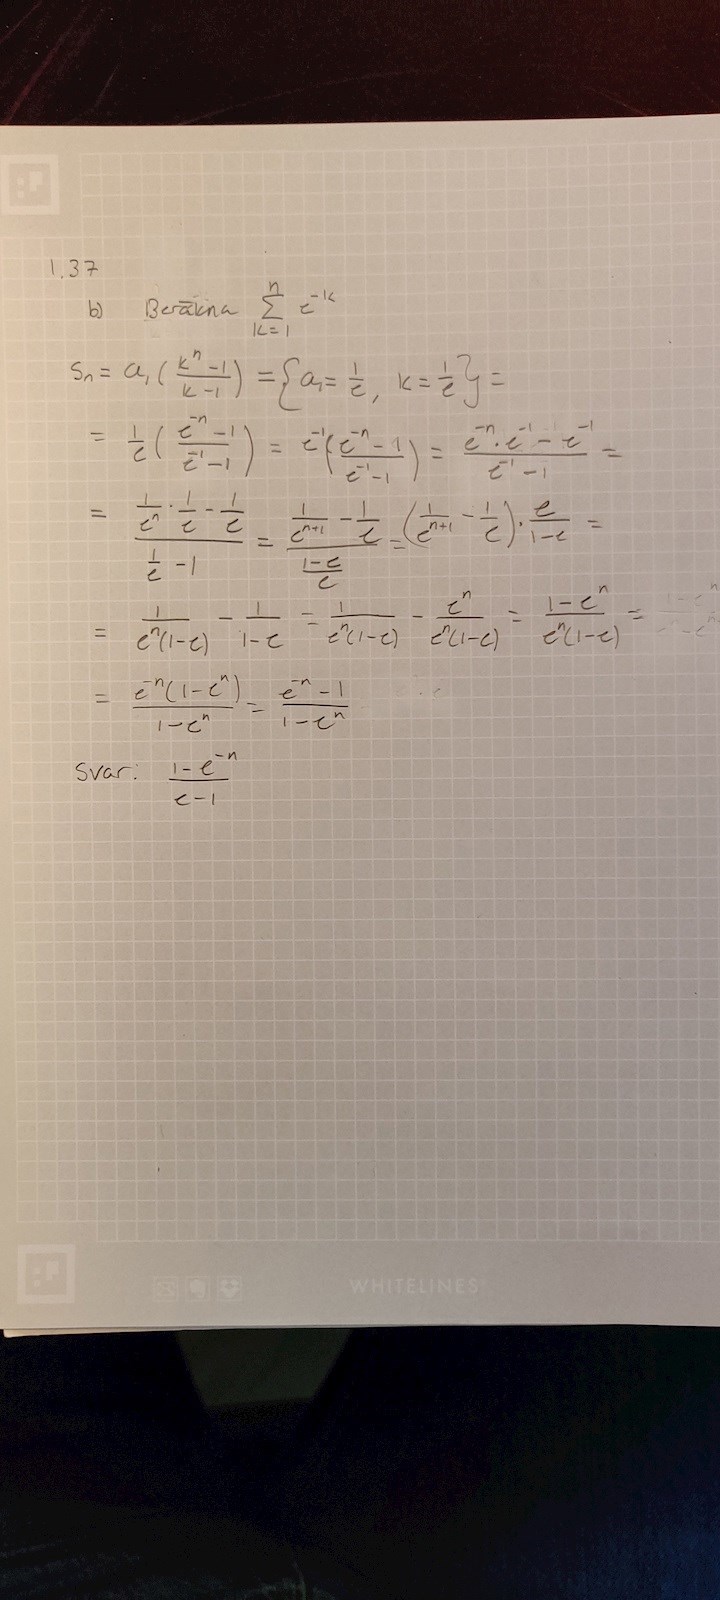 1.37
b) Beräkna \sum_{k=1}^{n} e^{-k}
S_n = a_1 ( \frac{k^n - 1}{k - 1} ) = \{ a_1 = \frac{1}{e}, k = \frac{1}{e} \} =
= \frac{1}{e} ( \frac{e^{-n} - 1}{e^{-1} - 1} ) = e^{-1} ( \frac{e^{-n} - 1}{e^{-1} - 1} ) = \frac{e^{-n} \cdot e^{-1} - e^{-1}}{e^{-1} - 1} =
= \frac{\frac{1}{e^n} \cdot \frac{1}{e} - \frac{1}{e}}{\frac{1}{e} - 1} = \frac{\frac{1}{e^{n+1}} - \frac{1}{e}}{\frac{1-e}{e}} = ( \frac{1}{e^{n+1}} - \frac{1}{e} ) \cdot \frac{e}{1-e} =
= \frac{1}{e^n(1-e)} - \frac{1}{1-e} = \frac{1}{e^n(1-e)} - \frac{e^n}{e^n(1-e)} = \frac{1-e^n}{e^n(1-e)} =
= \frac{e^{-n}(1-e^n)}{1-e^n} = \frac{e^{-n} - 1}{1-e^n}
Svar: \frac{1-e^{-n}}{e-1}
WHITELINES